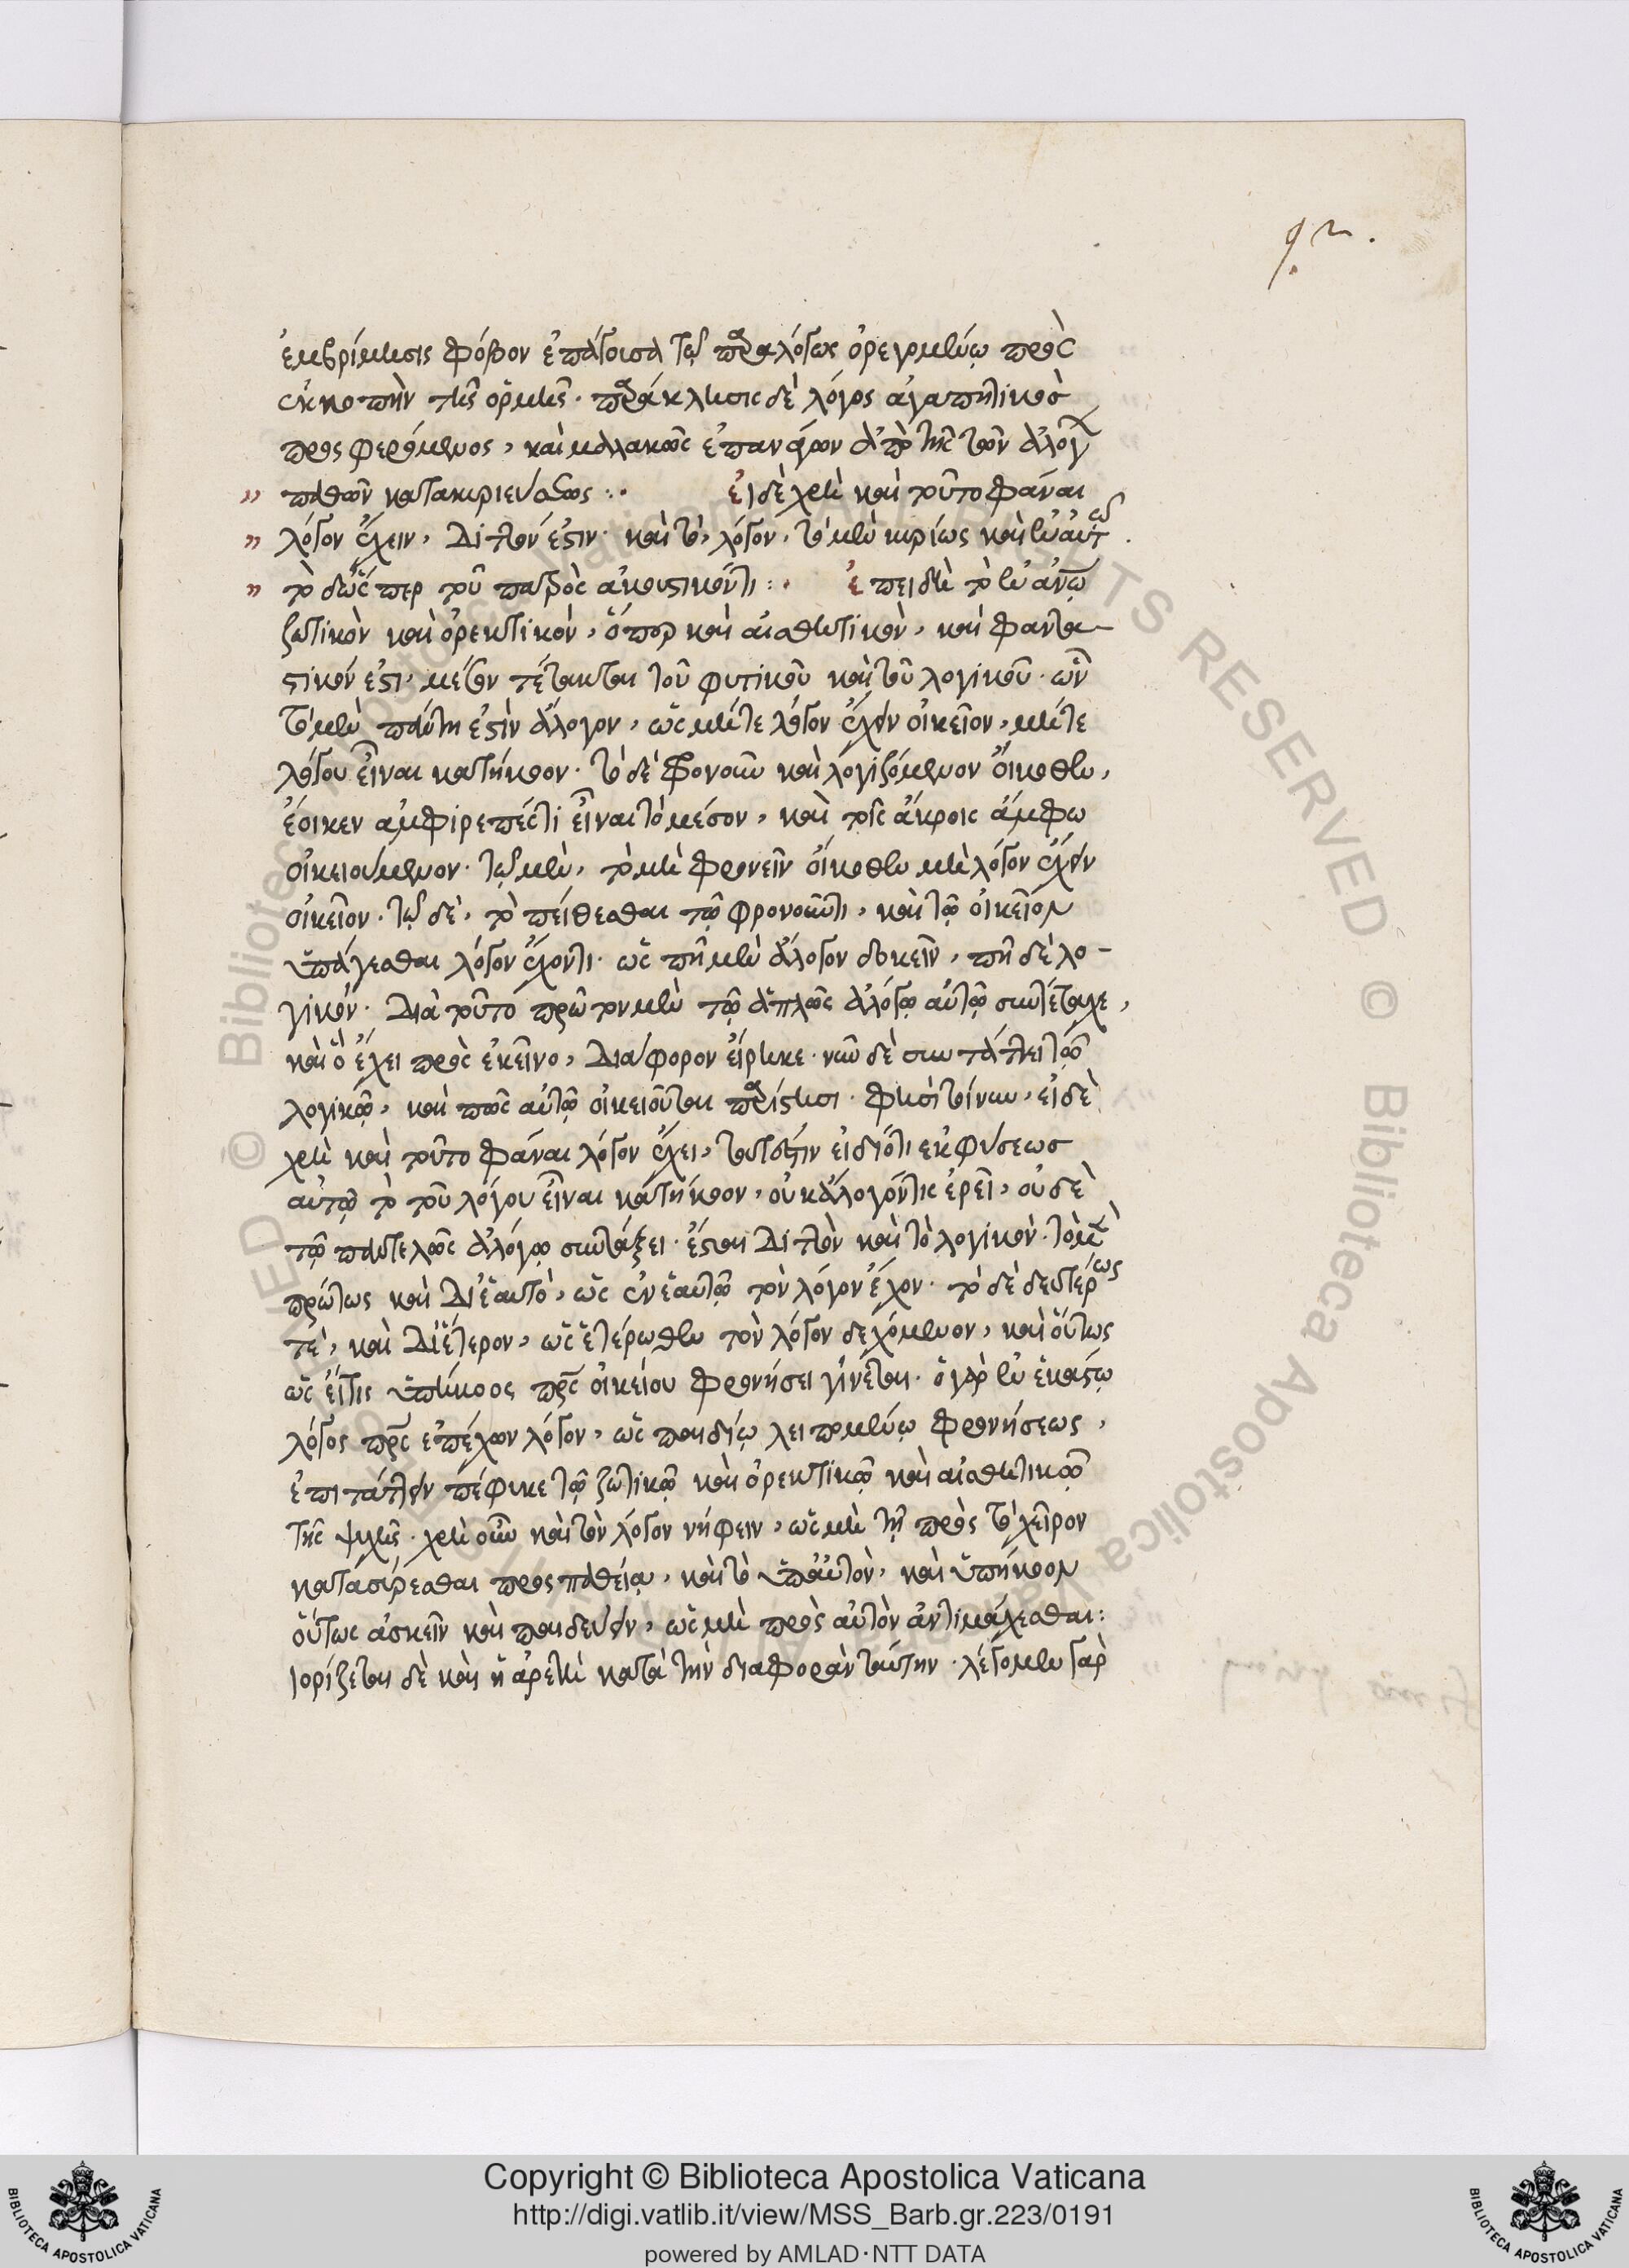 ἐμβρίμησις φόβον ἐπάγουσα τῷ παραλόγως ὀρεγομένῳ πρὸς
ἐκκοπὴν τῆς ὁρμῆς. παράκλησις δὲ λόγος ἀγαπητικὸσ
προσφερόμενος, καὶ μαλακῶς ἐπανάγων ἀπὸ τῆς τῶν ἀλόγων
" παθῶν κατακυριεύσεως :. εἰ δὲ χρὴ καὶ τοῦτο φάναι
" λόγον ἔχειν, διττὸν ἔσται καὶ τὸ λόγον, τὸ μὲν κυρίως καὶ ἐν αὑτῷ.
" τὸ δ' ὥσπερ τοῦ πατρὸς ἀκουστικόν τι :. ἐπειδὴ τὸ ἐν ἀνθρώπῳ
ζωτικὸν καὶ ὀρεκτικὸν, ὅπερ καὶ αἰσθητικὸν, καὶ φαντα-
στικόν ἐστι, μέσον τέτακται τοῦ φυτικοῦ καὶ τοῦ λογικοῦ. ὧν
τὸ μὲν πάντη ἐστὶν ἄλογον, ὡς μήτε λόγον ἔχειν οἰκεῖον, μήτε
λόγου εἶναι κατήκοον. τὸ δὲ φρονοῦν καὶ λογιζόμενον οἴκοθεν,
ἔοικεν ἀμφιρεπές τι εἶναι τὸ μέσον, καὶ τοῖς ἄκροις ἄμφω
οἰκειούμενον. τῷ μὲν, τὸ μὴ φρονεῖν οἴκοθεν μὴ λόγον ἔχειν
οἰκεῖον. τῷ δὲ, τὸ πείθεσθαι τῷ φρονοῦντι, καὶ τῷ οἰκεῖον
ὑπάγεσθαι λόγον ἔχοντι. ὡς πῆ μὲν ἄλογον δοκεῖν, πῆ δὲ λο-
γικόν. διὰ τοῦτο πρῶτον μὲν τῷ ἁπλῶς ἀλόγῳ αὐτῷ συνέταξε,
καὶ ὃ ἔχει πρὸς ἐκεῖνο, διάφορον εἴρηκε. νῦν δὲ συντάττει τῷ
λογικῷ, καὶ πῶς αὐτῷ οἰκειοῦται παρίστησι. φησὶ τοίνυν, εἰ δὲ
χρὴ καὶ τοῦτο φάναι λόγον ἔχει, τουτέστιν εἰ διότι ἐκ φύσεωσ
αὐτῷ τὸ τοῦ λόγου εἶναι κατήκοον, οὐκ ἄλογόν τις ἐρεῖ, οὐδὲ
τῷ παντελῶς ἀλόγῳ συντάξει. ἔσται διττὸν καὶ τὸ λογικόν. τὸ μὲν
πρώτως καὶ δι' ἑαυτὸ, ὡς ἐν ἑαυτῷ τὸν λόγον ἔχον. τὸ δὲ δευτέρως
τὲ, καὶ δι' ἕτερον, ὡς ἑτέρωθεν τὸν λόγον δεχόμενον, καὶ οὕτως
ὡς εἴ τις ὑπήκοος πατρὸς οἰκείου φρονήσει γίνεται. ὁ γὰρ ἐν ἑκάστῳ
λόγος πατρὸς ἐπέχων λόγον, ὡς παιδίῳ λειπομένῳ φρονήσεως,
ἐπιτάττειν πέφυκε τῷ ζωτικῷ καὶ ὀρεκτικῷ καὶ αἰσθητικῷ
τῆς ψυχῆς. χρὴ οὖν καὶ τὸν λόγον νήφειν, ὡς μὴ τῇ πρὸς τὸ χεῖρον
κατασύρεσθαι προσπαθείᾳ, καὶ τὸ ὑπ' αὐτὸν, καὶ ὑπήκοον
οὕτως ἀσκεῖν καὶ παιδεύειν, ὡς μὴ πρὸς αὐτὸν ἀντιμάχεσθαι:
διορίζεται δὲ καὶ ἡ ἀρετὴ κατὰ τὴν διαφορὰν ταύτην. λέγομεν γὰρ
Copyright © Biblioteca Apostolica Vaticana
http://digi.vatlib.it/view/MSS_Barb.gr.223/0191
powered by AMLAD·NTT DATA